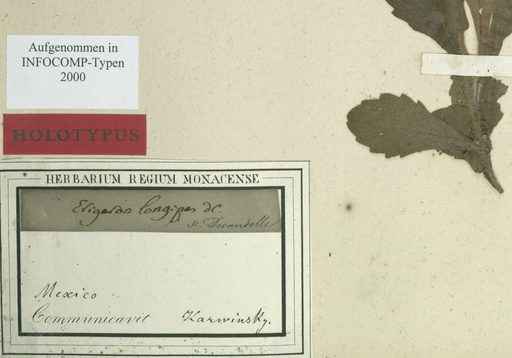 Aufgenommen in
INFOCOMP-Typen
2000
HOLOTYPUS
HERBARIUM REGIUM MONACENSE
Erigeron longipes DC.
Decandolle
Mexico
Communicavit Karwinsky.